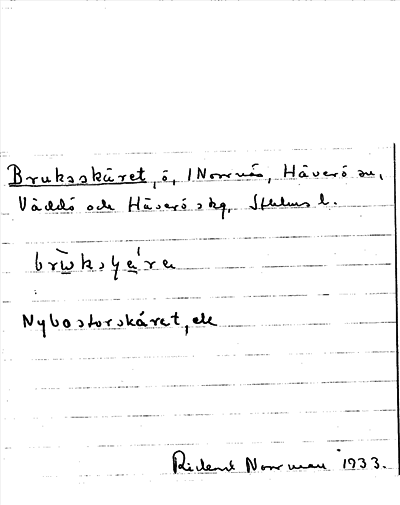 Bruksskäret, ö, Norrnäs, Häverö sn,
Väddö och Häverö skg, Sthlms l.
Nybostorskäret, ek
Rickard Norrman 1933.